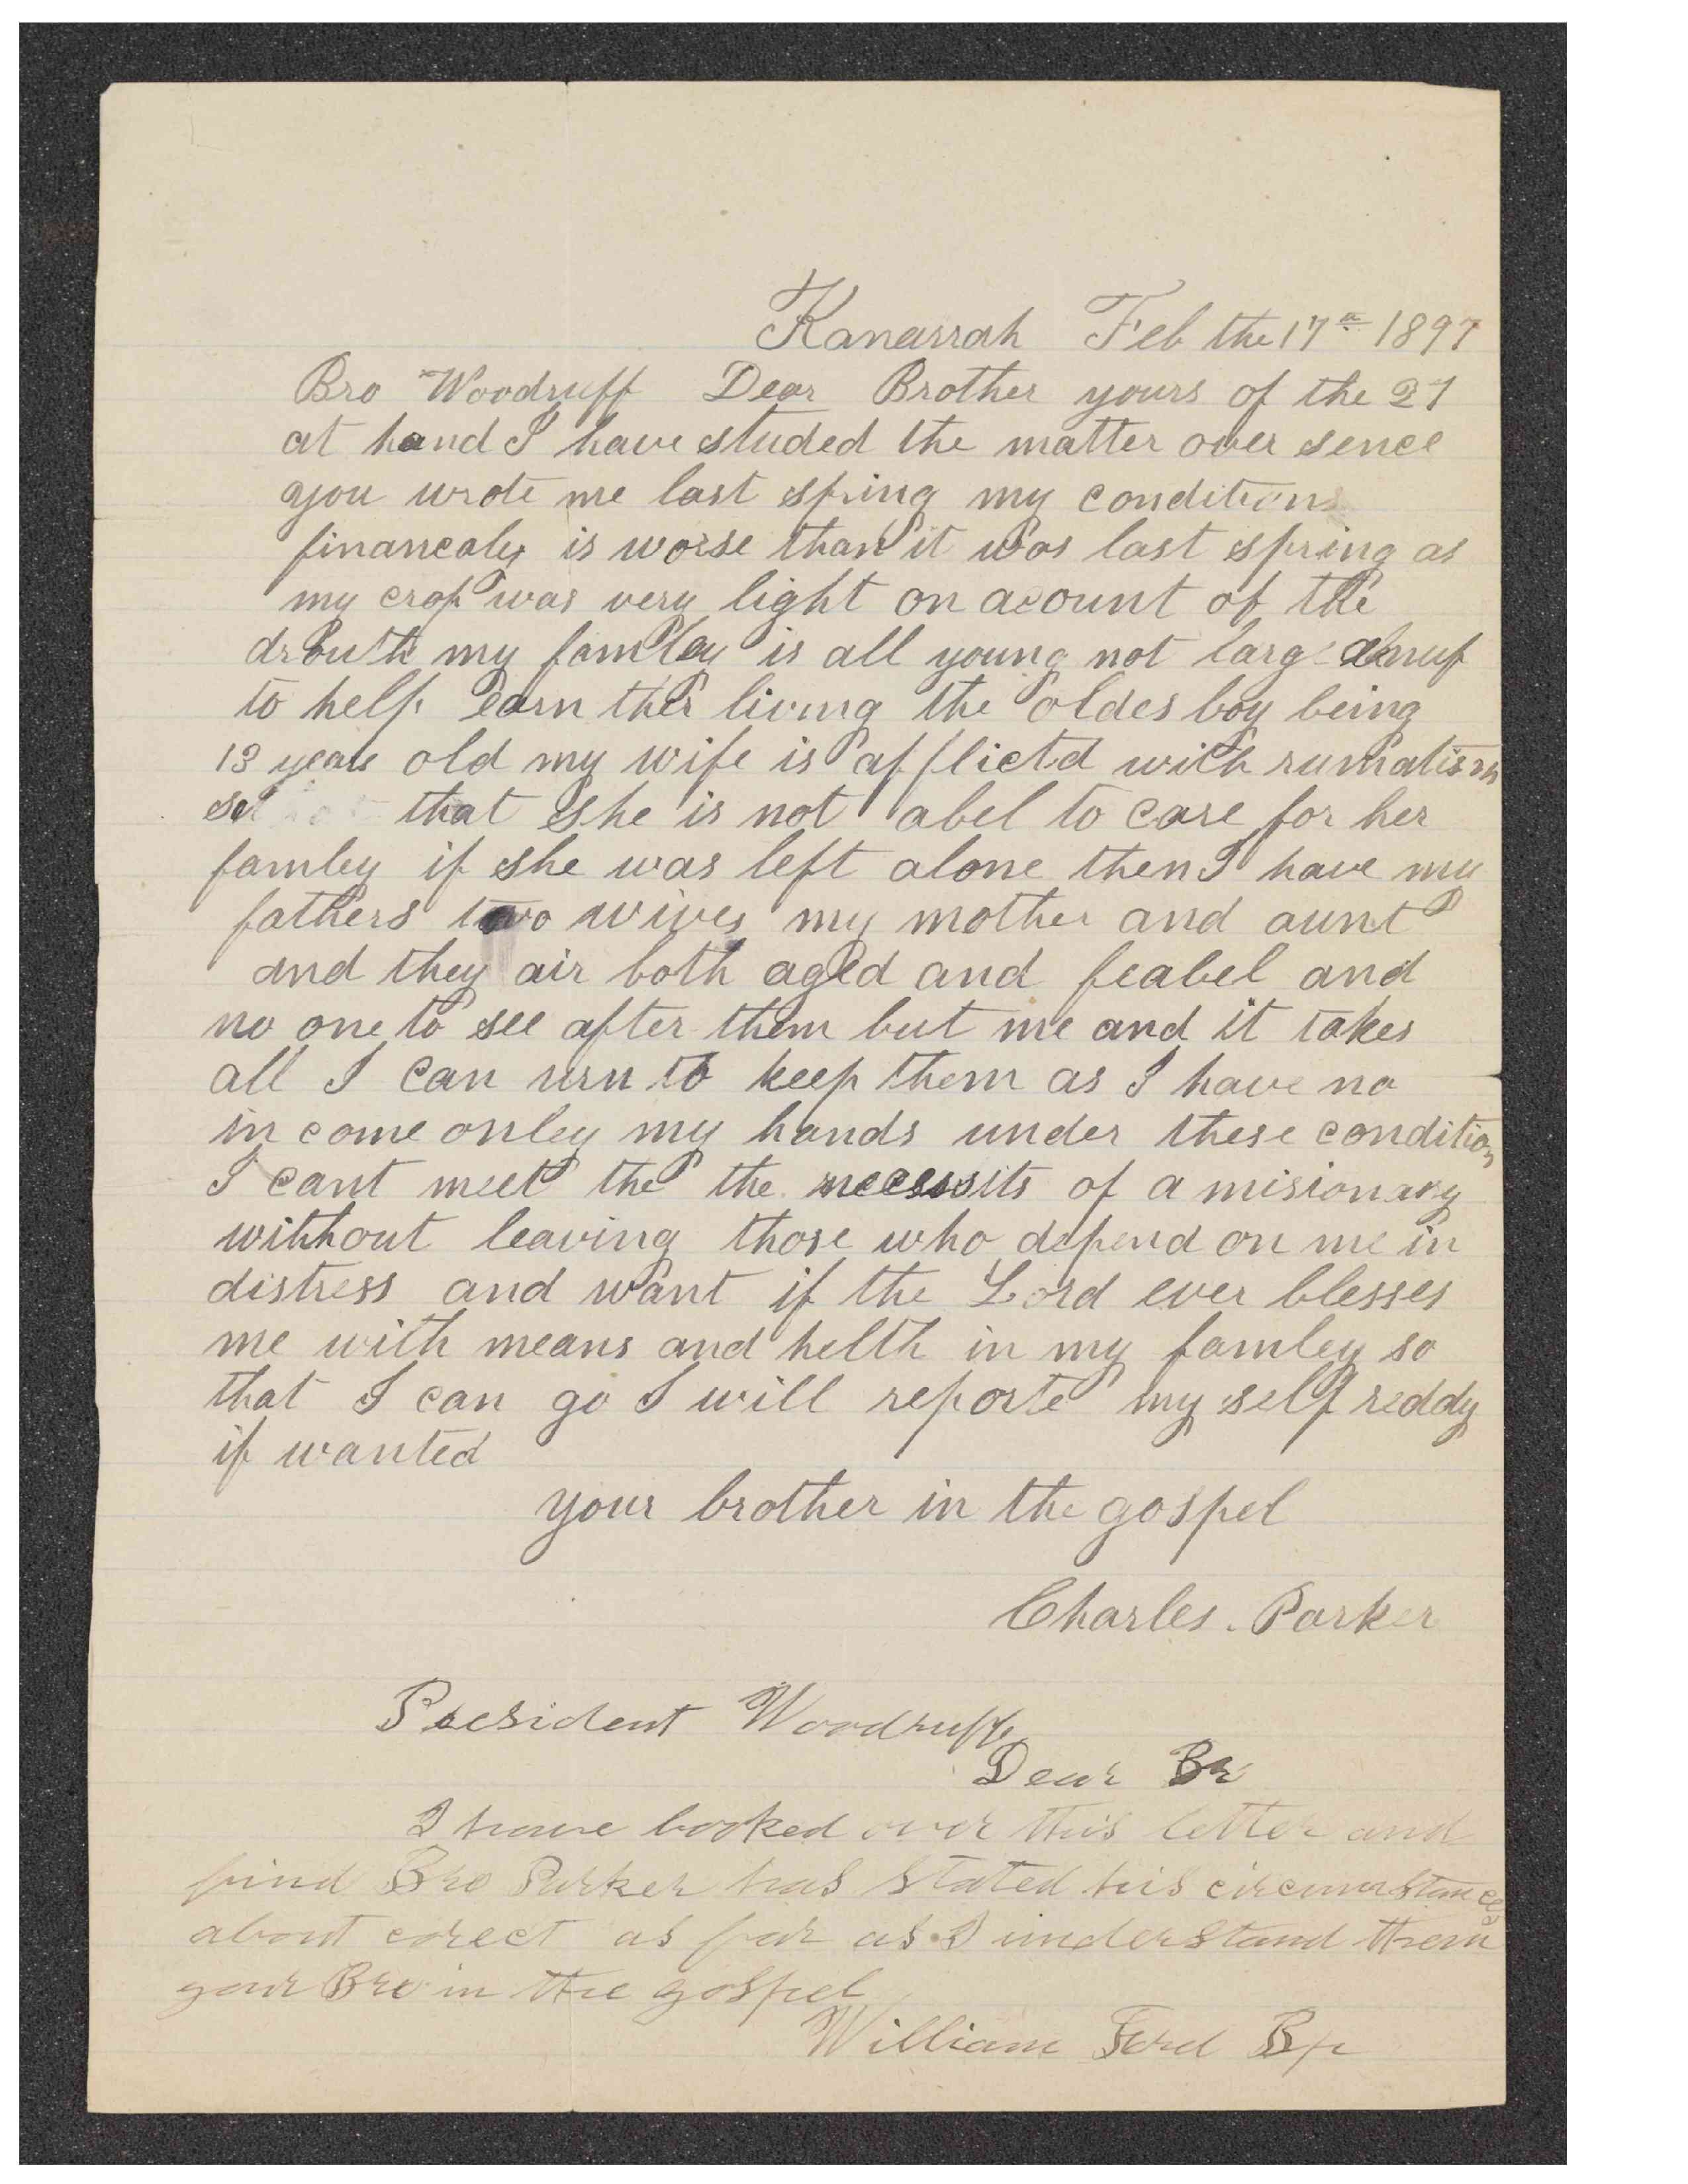 Kanarrah Feb the 17th 1897
Bro Woodruff Dear Brother yours of the 27
at hand I have studed the matter over sence
you wrote me last spring my conditions
financealy is worse than it was last spring as
my crop was very light on acount of the
drouth my famley is all young not large enuf
to help earn ther living the oldes boy being
13 years old my wife is afflictd with rumatism
so that she is not abel to care for her
famley if she was left alone then I have my
fathers two wives my mother and aunt
and they air both aged and feabel and
no one to see after them but me and it takes
all I can urn to keep them as I have no
in come onley my hands under these condition
I cant meet the the necessits of a misionary
withhout leaving those who depend on me in
distress and want if the Lord ever blesses
me with means and helth in my famley so
that I can go I will reporte my self reddy
if wanted
your brother in the gospel
Charles. Parker
President Woodruff
Dear Br
I have looked over this letter and
find Bro Parker has stated his circumstances
about corect as far as I understand them
your Bro in the gospel
William Ford Bp